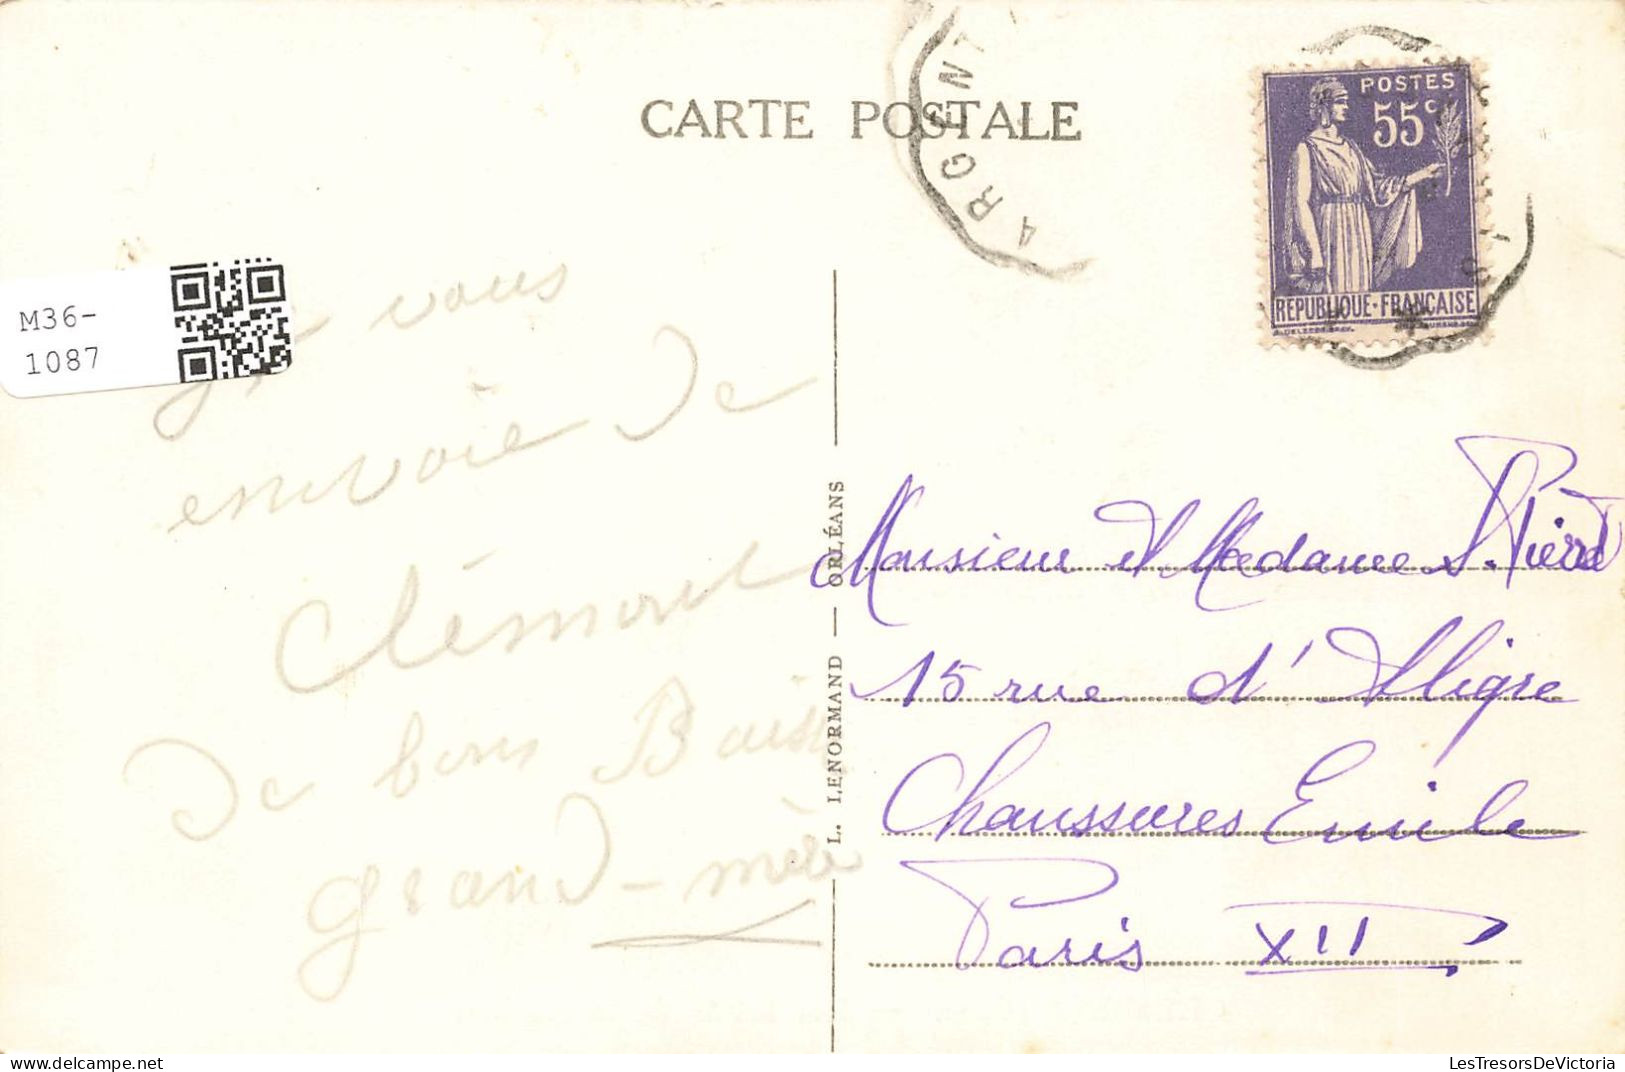 CARTE POSTALE
ARGENT
POSTES
55c
REPUBLIQUE·FRANCAISE
M36-
1087
Je vous
envoie de
Clémont
De bons Bais
grand-mère
L. LENORMAND — ORLÉANS
Monsieur et Madame S. Pierre
15 rue d'Aligre
Chaussures Emile
Paris XII
LesTresorsDeVictoria